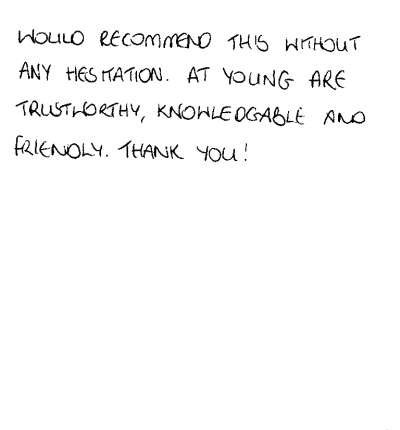 WOULD RECOMMEND THIS WITHOUT
ANY HESITATION. AT YOUNG ARE
TRUSTWORTHY, KNOWLEDGABLE AND
FRIENDLY. THANK YOU!